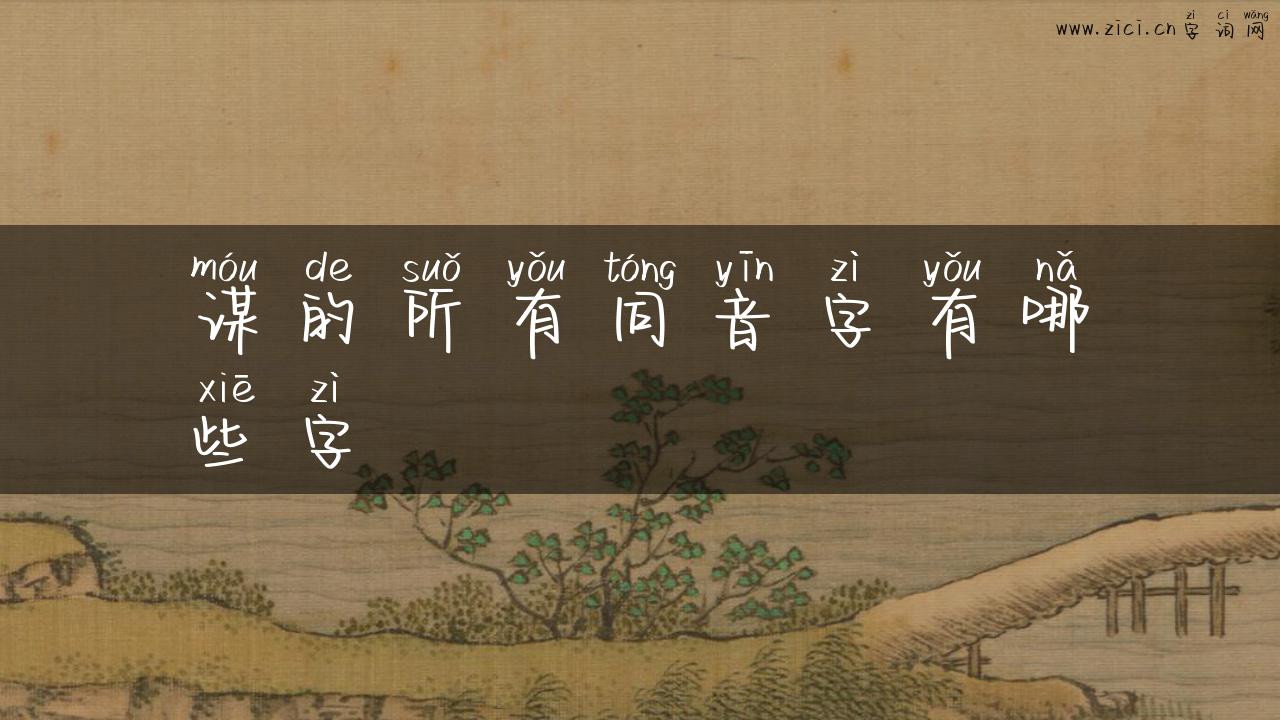 zì cí wǎng
www.zici.cn 字词网
móu de suǒ yǒu tóng yīn zì yǒu nǎ
谋的所有同音字有哪
xiē zì
些字